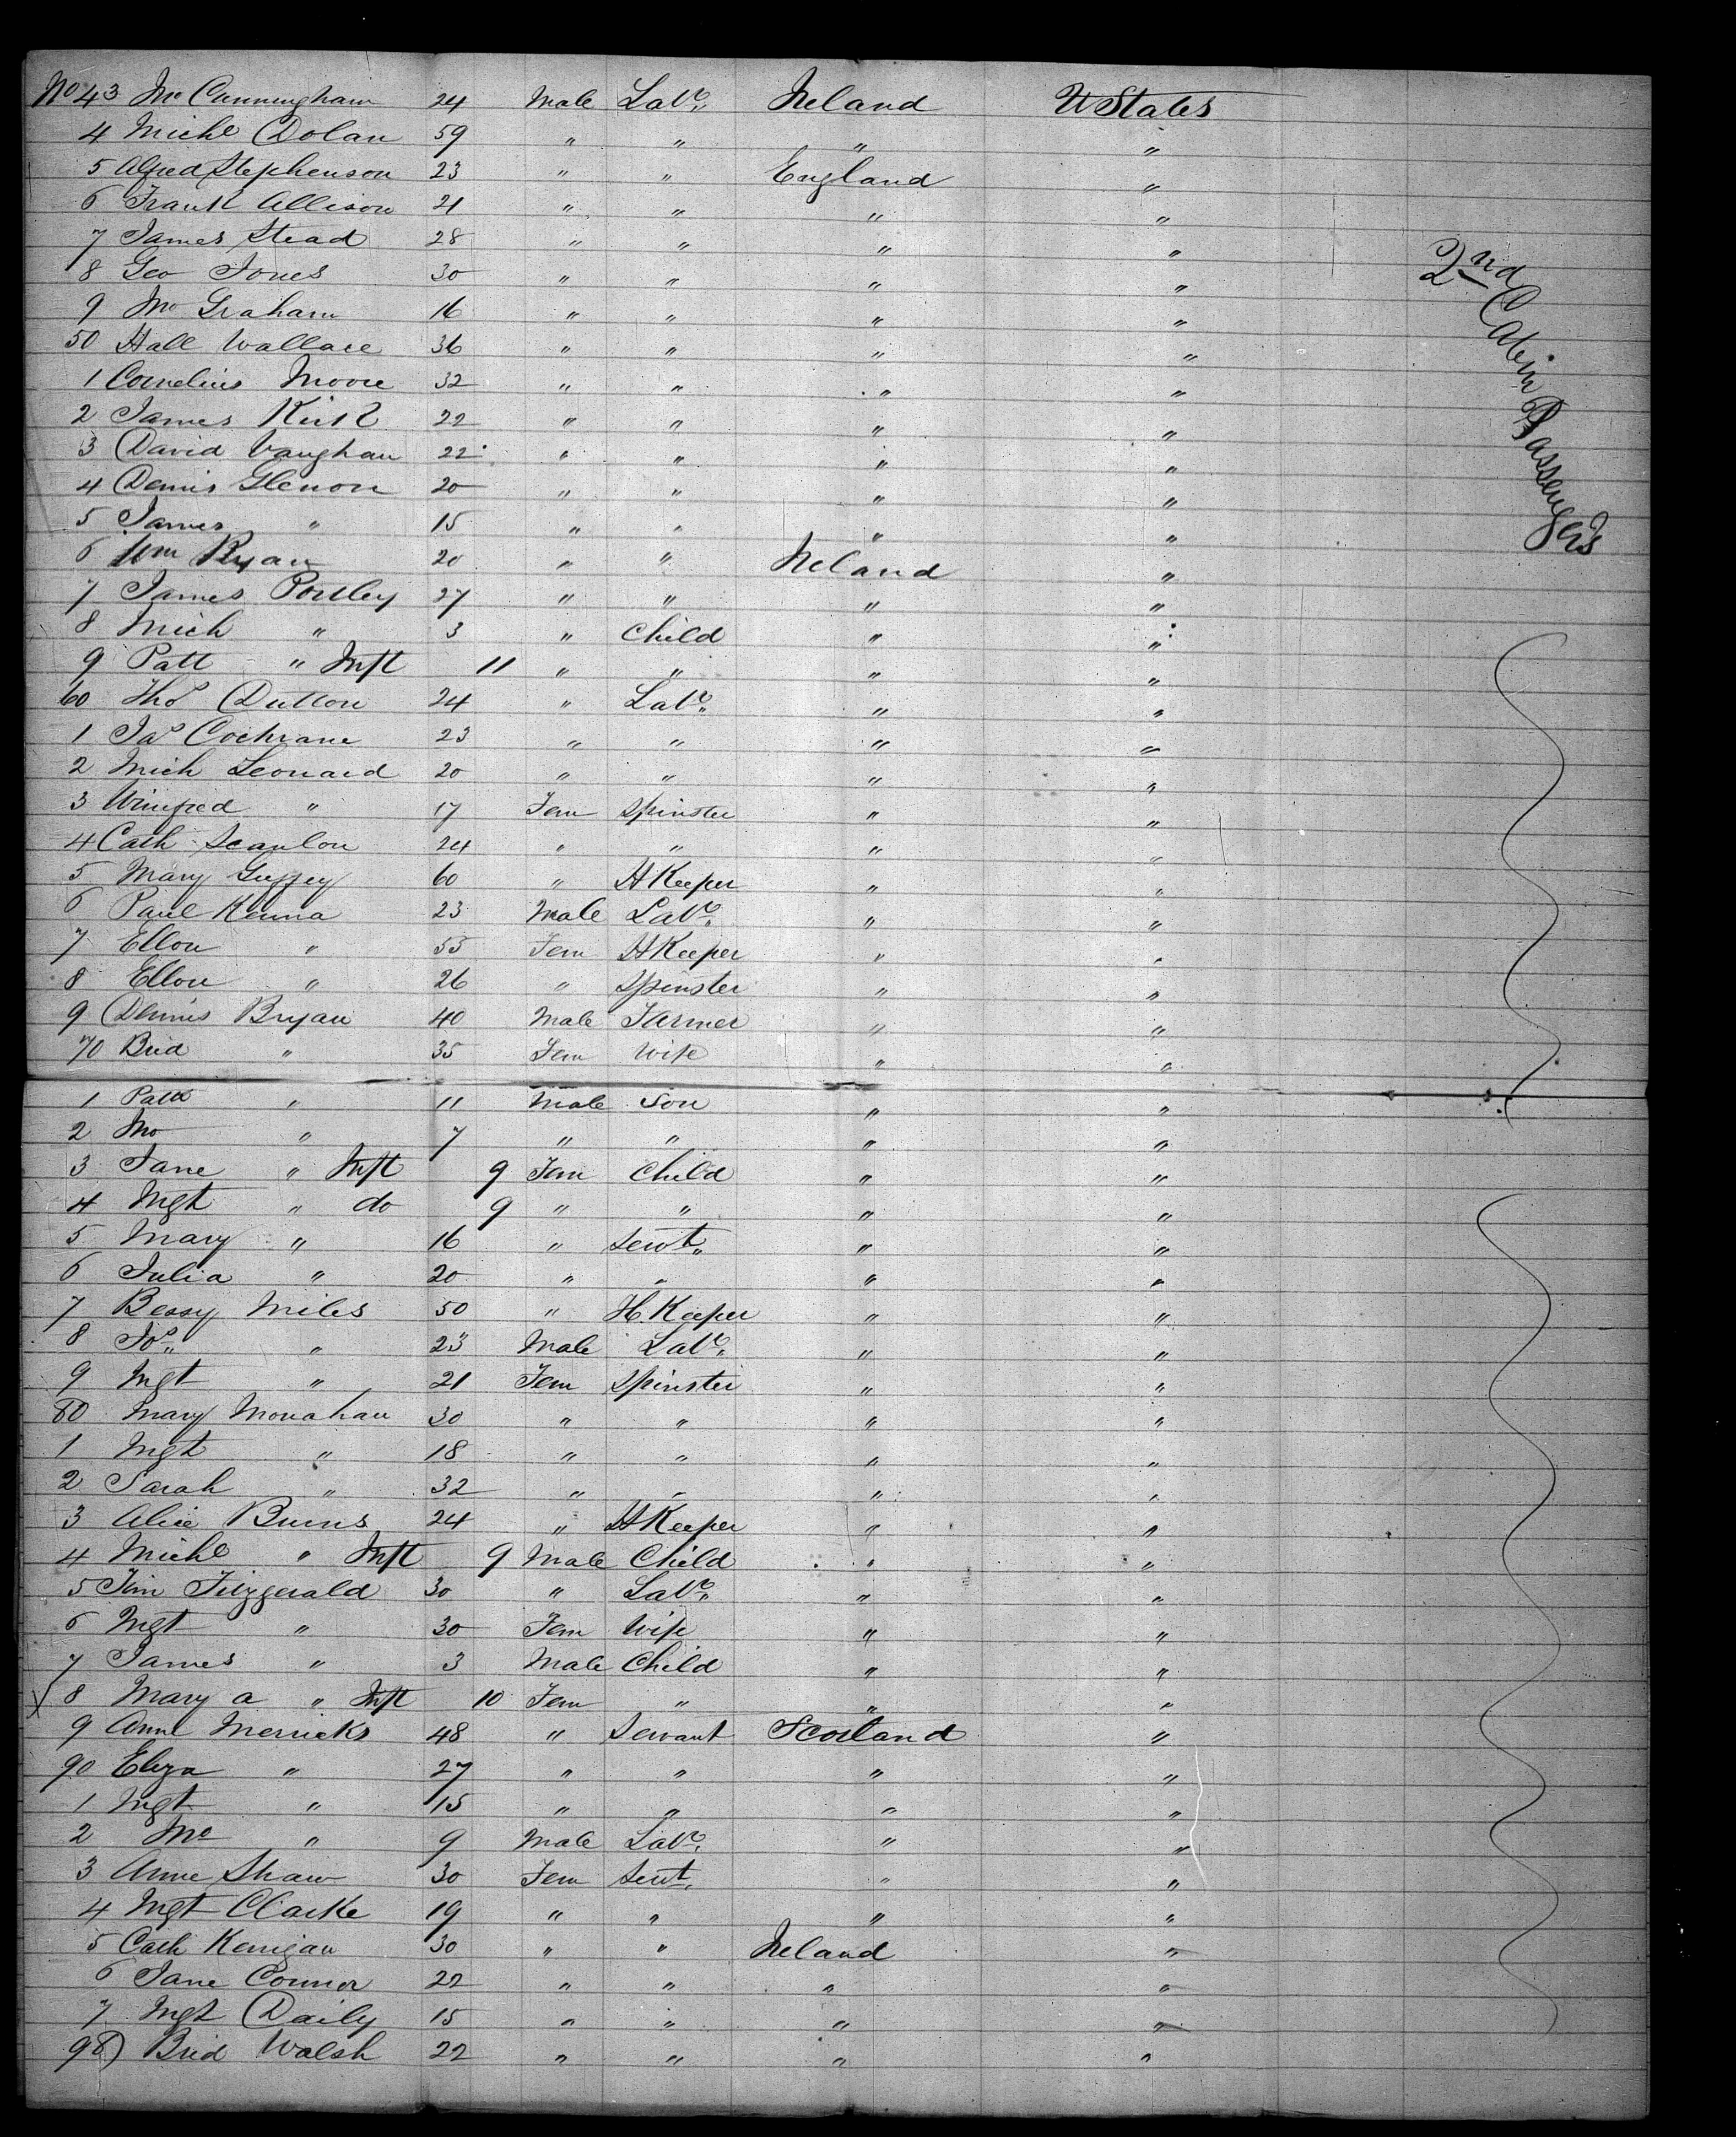 No 43 Jno Cunningham 24 Male Labr. Ireland U States
4 Michl Dolan 59 " " " "
5 Alfred Stephenson 23 " " England "
6 Frank Allison 21 " " " "
7 James Stead 28 " " " "
8 Geo Jones 30 " " " "
9 Jno Graham 16 " " " "
50 Hall Wallace 36 " " " "
1 Cornelius Moore 32 " " " "
2 James Kirk 22 " " " "
3 David Vaughan 22 " " " "
4 Dennis Glenon 20 " " " "
5 James " 15 " " " "
6 Wm Ryan 20 " " Ireland "
7 James 27 " " " "
8 Mich " 3 " Child " "
9 Patt " Inft 11 " " " "
60 Thos Dutton 24 " Labr. " "
1 Jas Cochrane 23 " " " "
2 Mich Leonard 20 " " " "
3 Winifred " 17 Fem Spinster " "
4 Cath Scanlon 24 " " " "
5 Mary 60 " H Keeper " "
6 Paul Kenna 23 Male Labr. " "
7 Ellen " 53 Fem H Keeper " "
8 Ellen " 26 " Spinster " "
9 Dennis Bryan 40 Male Farmer " "
70 Brid " 35 Fem Wife " "
1 Patk " 11 Male Son " "
2 Jno " 7 " " " "
3 Jane " Inft 9 Fem Child " "
4 Mgt " do 9 " " " "
5 Mary " 16 " Servt. " "
6 Julia " 20 " " " "
7 Bessy Miles 50 " H Keeper " "
8 Jos. " 23 Male Labr. " "
9 Mgt " 21 Fem Spinster " "
80 Mary Monahan 30 " " " "
1 Mgt " 18 " " " "
2 Sarah " 32 " " " "
3 Alice Burns 24 " H Keeper " "
4 Michl " Inft 9 Male Child " "
5 Tim Fitzgerald 30 " Labr. " "
6 Mgt " 30 Fem Wife " "
7 James " 3 Male Child " "
8 Mary A " Inft 10 Fem " " "
9 Anne Merricks 48 " Servant Scotland "
90 Eliza " 27 " " " "
1 Mgt " 15 " " " "
2 Jno " 9 Male Labr. " "
3 Anne Shaw 30 Fem Servt. " "
4 Mgt Clarke 19 " " " "
5 Cath Kerrigan 30 " " Ireland "
6 Jane Connor 22 " " " "
7 Mgt Daily 15 " " " "
98) Brid Walsh 22 " " " "
2nd Cabin Passengers